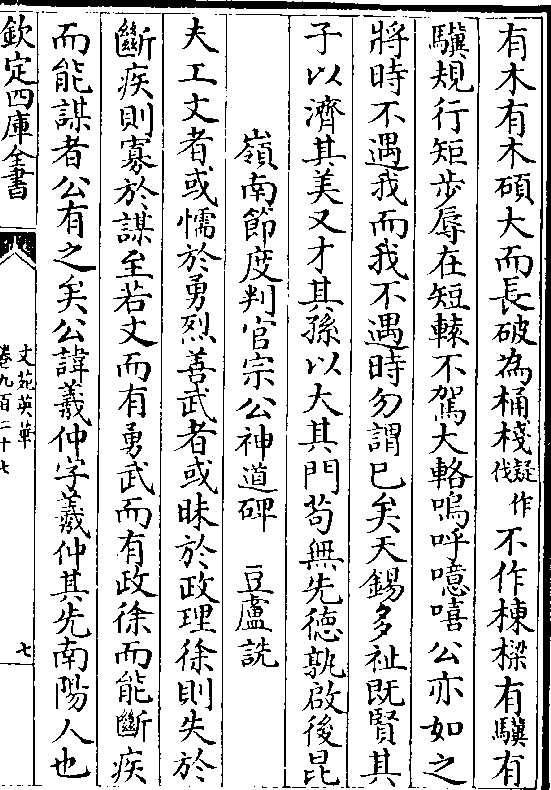 有木有木碩大而長破為桶棧疑作伐不作棟樑有驥有
驥規行矩步辱在短轅不駕大輅嗚呼噫嘻公亦如之
將時不遇我而我不遇時勿謂已矣天錫多祉既賢其
子以濟其美又才其孫以大其門苟無先德孰啟後昆
嶺南節度判官宗公神道碑 豆盧詵
夫工文者或懦於勇烈善武者或昧於政理徐則失於
斷疾則寡於謀至若文而有勇武而有政徐而能斷疾
而能謀者公有之矣公諱羲仲字羲仲其先南陽人也
欽定四庫全書
文苑英華
卷九百二十七
七